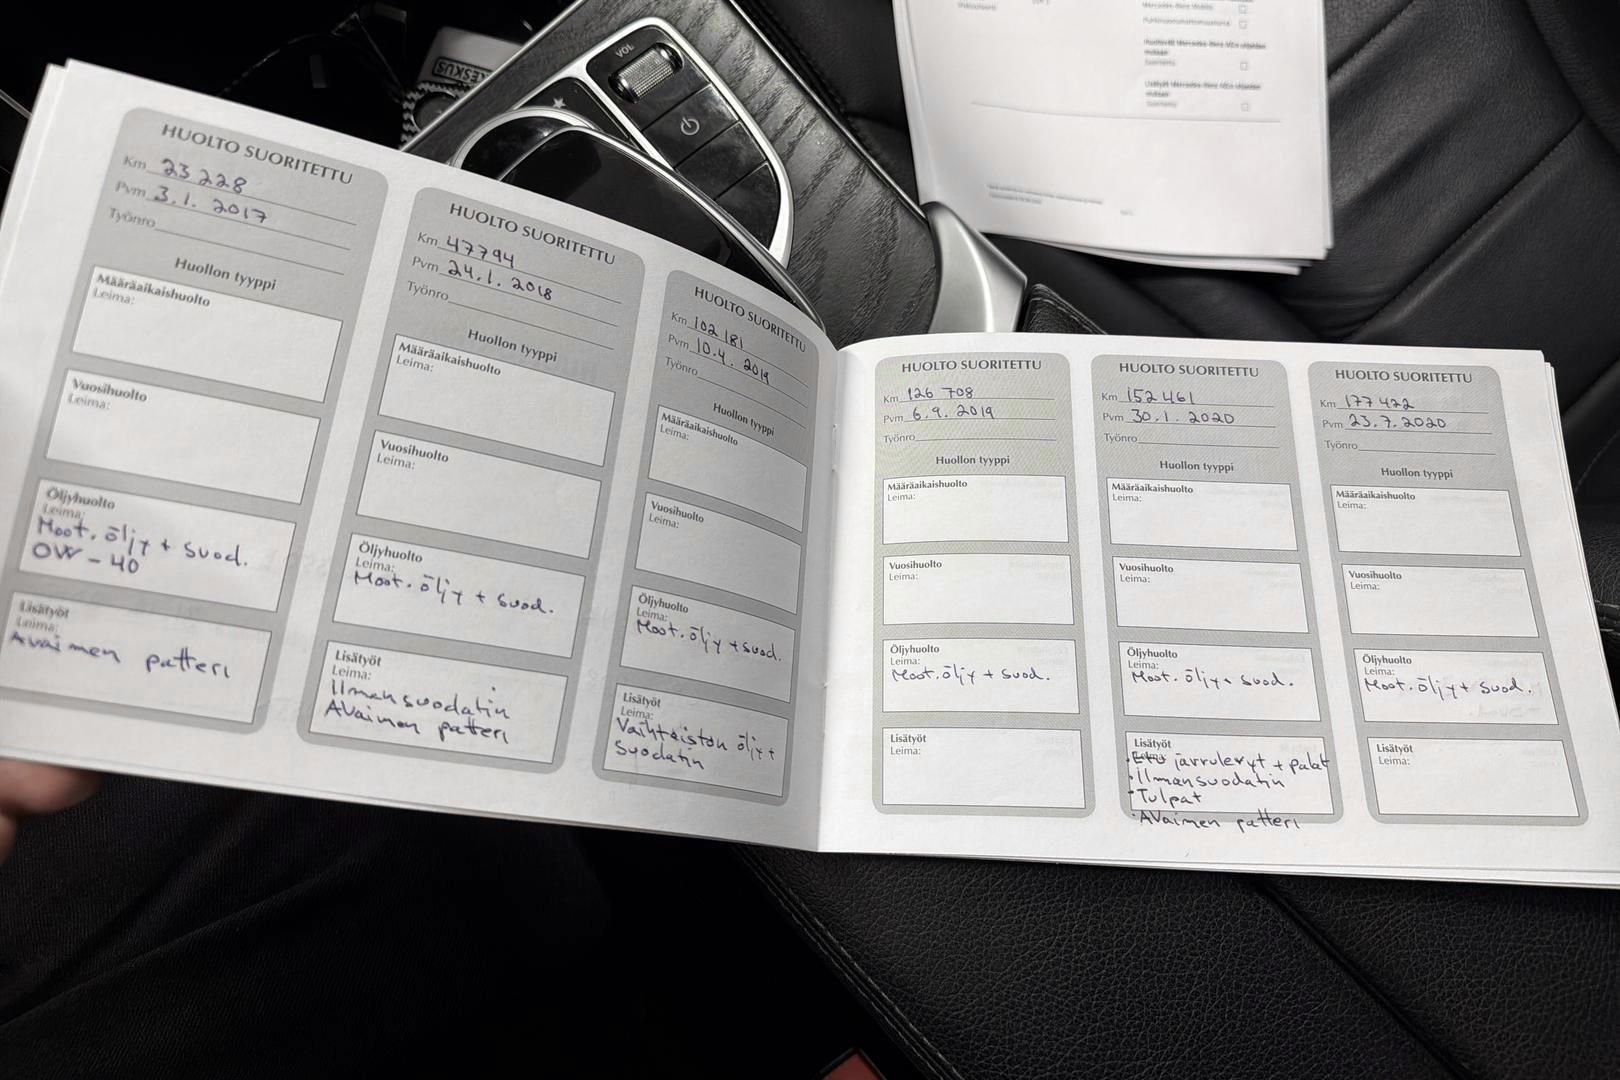 HUOLTO SUORITETTU
Km 23 228
Pvm 3.1. 2017
Työnro
Huollon tyyppi
Määräaikaishuolto
Leima:
Vuosihuolto
Leima:
Öljyhuolto
Leima:
Moot. öljy + suod.
0W - 40
Lisätyöt
Leima:
Avaimen patteri
HUOLTO SUORITETTU
Km 47794
Pvm 24.1. 2018
Työnro
Huollon tyyppi
Määräaikaishuolto
Leima:
Vuosihuolto
Leima:
Öljyhuolto
Leima:
Moot. öljy + suod.
Lisätyöt
Leima:
Ilmansuodatin
Avaimen patteri
HUOLTO SUORITETTU
Km 102 181
Pvm 10.4. 2019
Työnro
Huollon tyyppi
Määräaikaishuolto
Leima:
Vuosihuolto
Leima:
Öljyhuolto
Leima:
Moot. öljy + suod.
Lisätyöt
Leima:
Vaihteiston öljy +
suodatin
HUOLTO SUORITETTU
Km 126 708
Pvm 6.9. 2019
Työnro
Huollon tyyppi
Määräaikaishuolto
Leima:
Vuosihuolto
Leima:
Öljyhuolto
Leima:
Moot. öljy + suod.
Lisätyöt
Leima:
HUOLTO SUORITETTU
Km 152 461
Pvm 30.1. 2020
Työnro
Huollon tyyppi
Määräaikaishuolto
Leima:
Vuosihuolto
Leima:
Öljyhuolto
Leima:
Moot. öljy + suod.
Lisätyöt
Leima:
· Etu jarrulevyt + palat
· Ilmansuodatin
· Tulpat
· Avaimen patteri
HUOLTO SUORITETTU
Km 177 422
Pvm 23.7. 2020
Työnro
Huollon tyyppi
Määräaikaishuolto
Leima:
Vuosihuolto
Leima:
Öljyhuolto
Leima:
Moot. öljy + suod.
Lisätyöt
Leima:
VOL
KESKUS